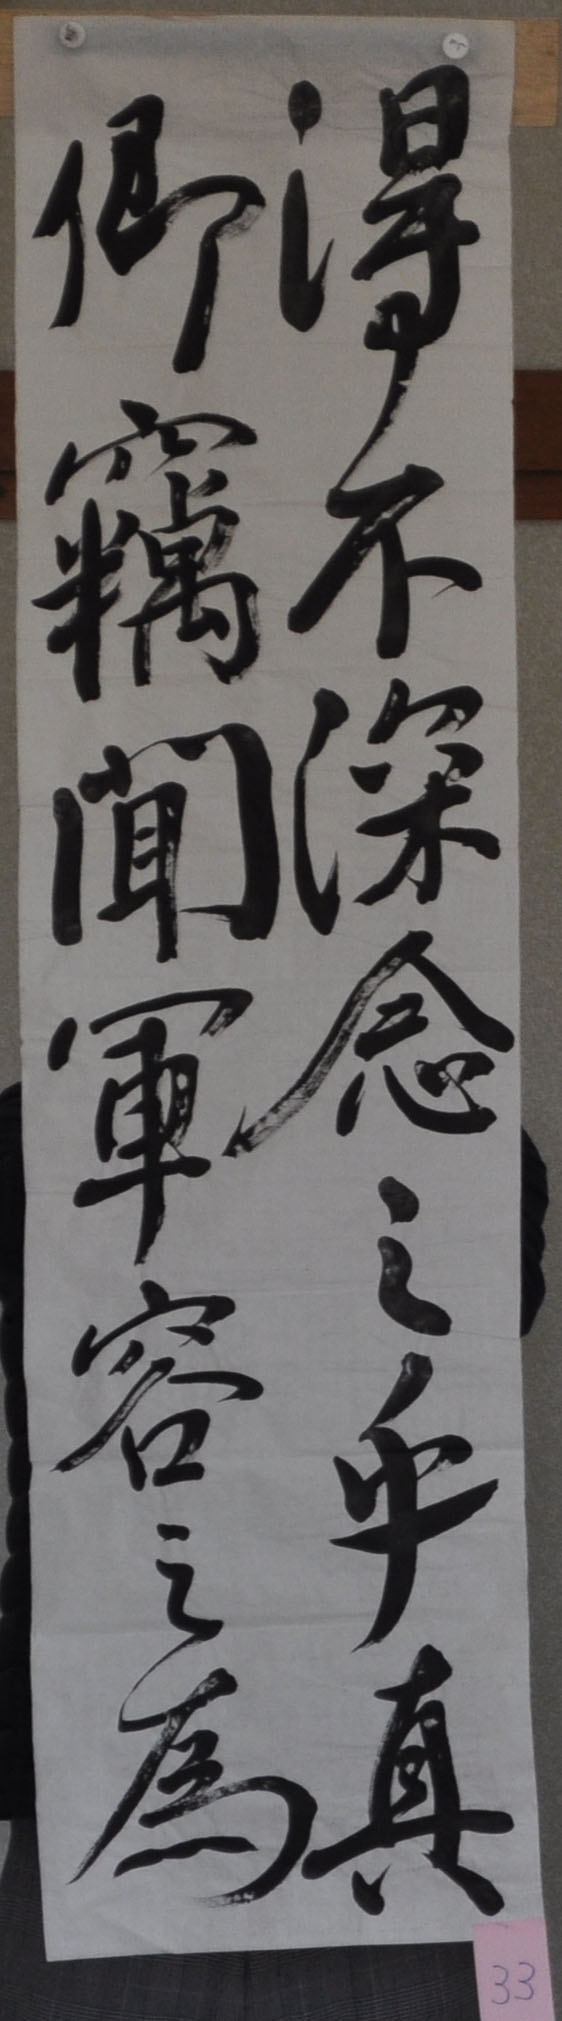 得不深念之乎真
卿竊聞軍容之為
33